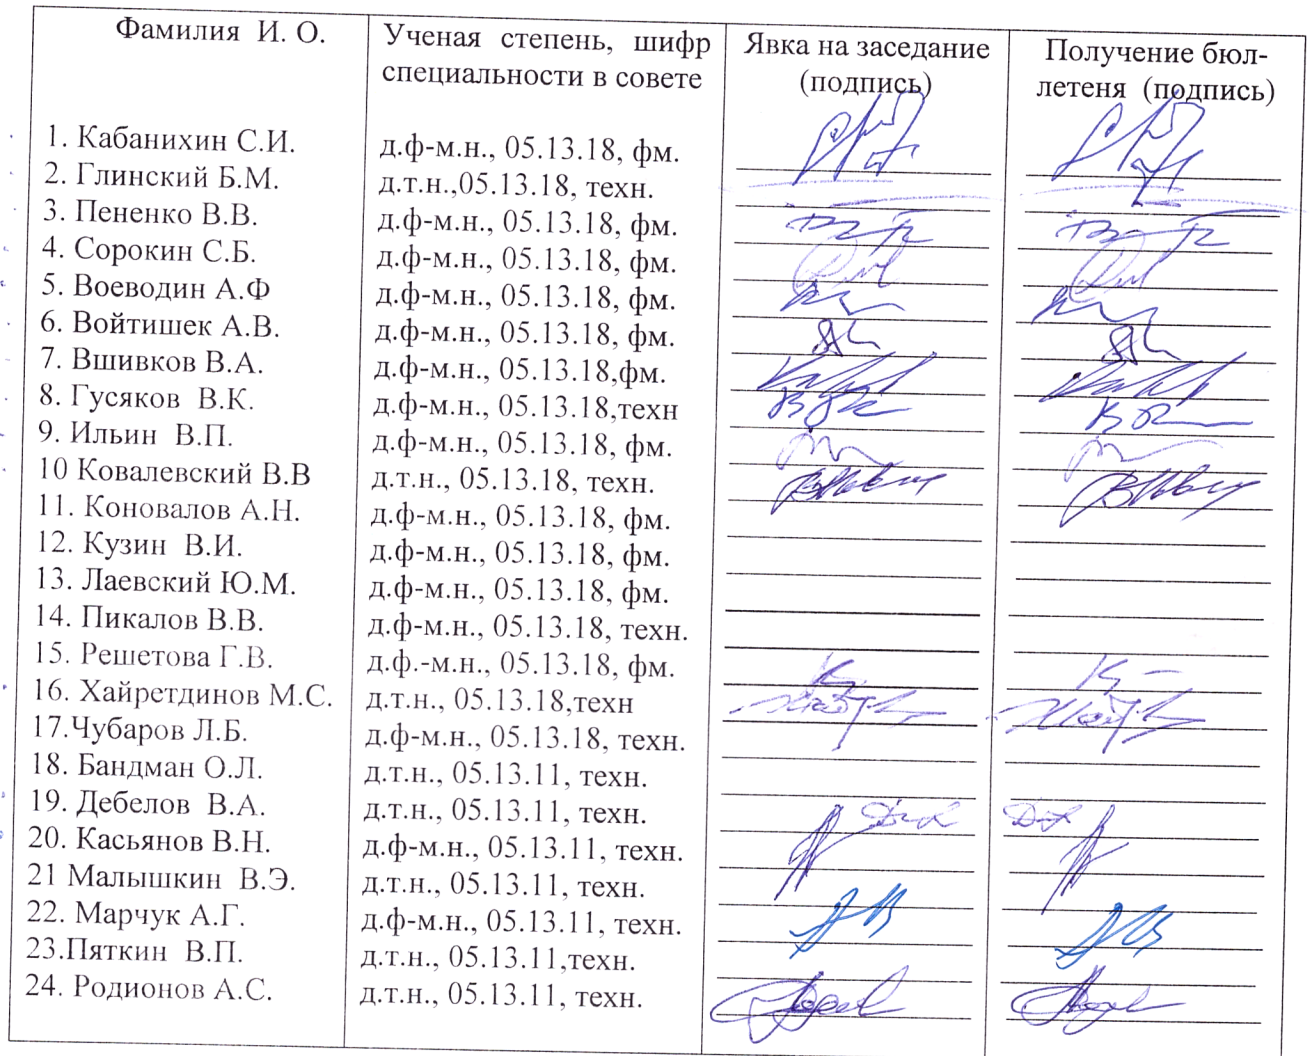 Фамилия И. О.
Ученая степень, шифр
специальности в совете
Явка на заседание
(подпись)
Получение бюл-
летеня (подпись)
1. Кабанихин С.И. д.ф-м.н., 05.13.18, фм.
2. Глинский Б.М. д.т.н.,05.13.18, техн.
3. Пененко В.В. д.ф-м.н., 05.13.18, фм.
4. Сорокин С.Б. д.ф-м.н., 05.13.18, фм.
5. Воеводин А.Ф д.ф-м.н., 05.13.18, фм.
6. Войтишек А.В. д.ф-м.н., 05.13.18, фм.
7. Вшивков В.А. д.ф-м.н., 05.13.18,фм.
8. Гусяков В.К. д.ф-м.н., 05.13.18,техн
9. Ильин В.П. д.ф-м.н., 05.13.18, фм.
10 Ковалевский В.В д.т.н., 05.13.18, техн.
11. Коновалов А.Н. д.ф-м.н., 05.13.18, фм.
12. Кузин В.И. д.ф-м.н., 05.13.18, фм.
13. Лаевский Ю.М. д.ф-м.н., 05.13.18, фм.
14. Пикалов В.В. д.ф-м.н., 05.13.18, техн.
15. Решетова Г.В. д.ф.-м.н., 05.13.18, фм.
16. Хайретдинов М.С. д.т.н., 05.13.18,техн
17.Чубаров Л.Б. д.ф-м.н., 05.13.18, техн.
18. Бандман О.Л. д.т.н., 05.13.11, техн.
19. Дебелов В.А. д.т.н., 05.13.11, техн.
20. Касьянов В.Н. д.ф-м.н., 05.13.11, техн.
21 Малышкин В.Э. д.т.н., 05.13.11, техн.
22. Марчук А.Г. д.ф-м.н., 05.13.11, техн.
23.Пяткин В.П. д.т.н., 05.13.11,техн.
24. Родионов А.С. д.т.н., 05.13.11, техн.